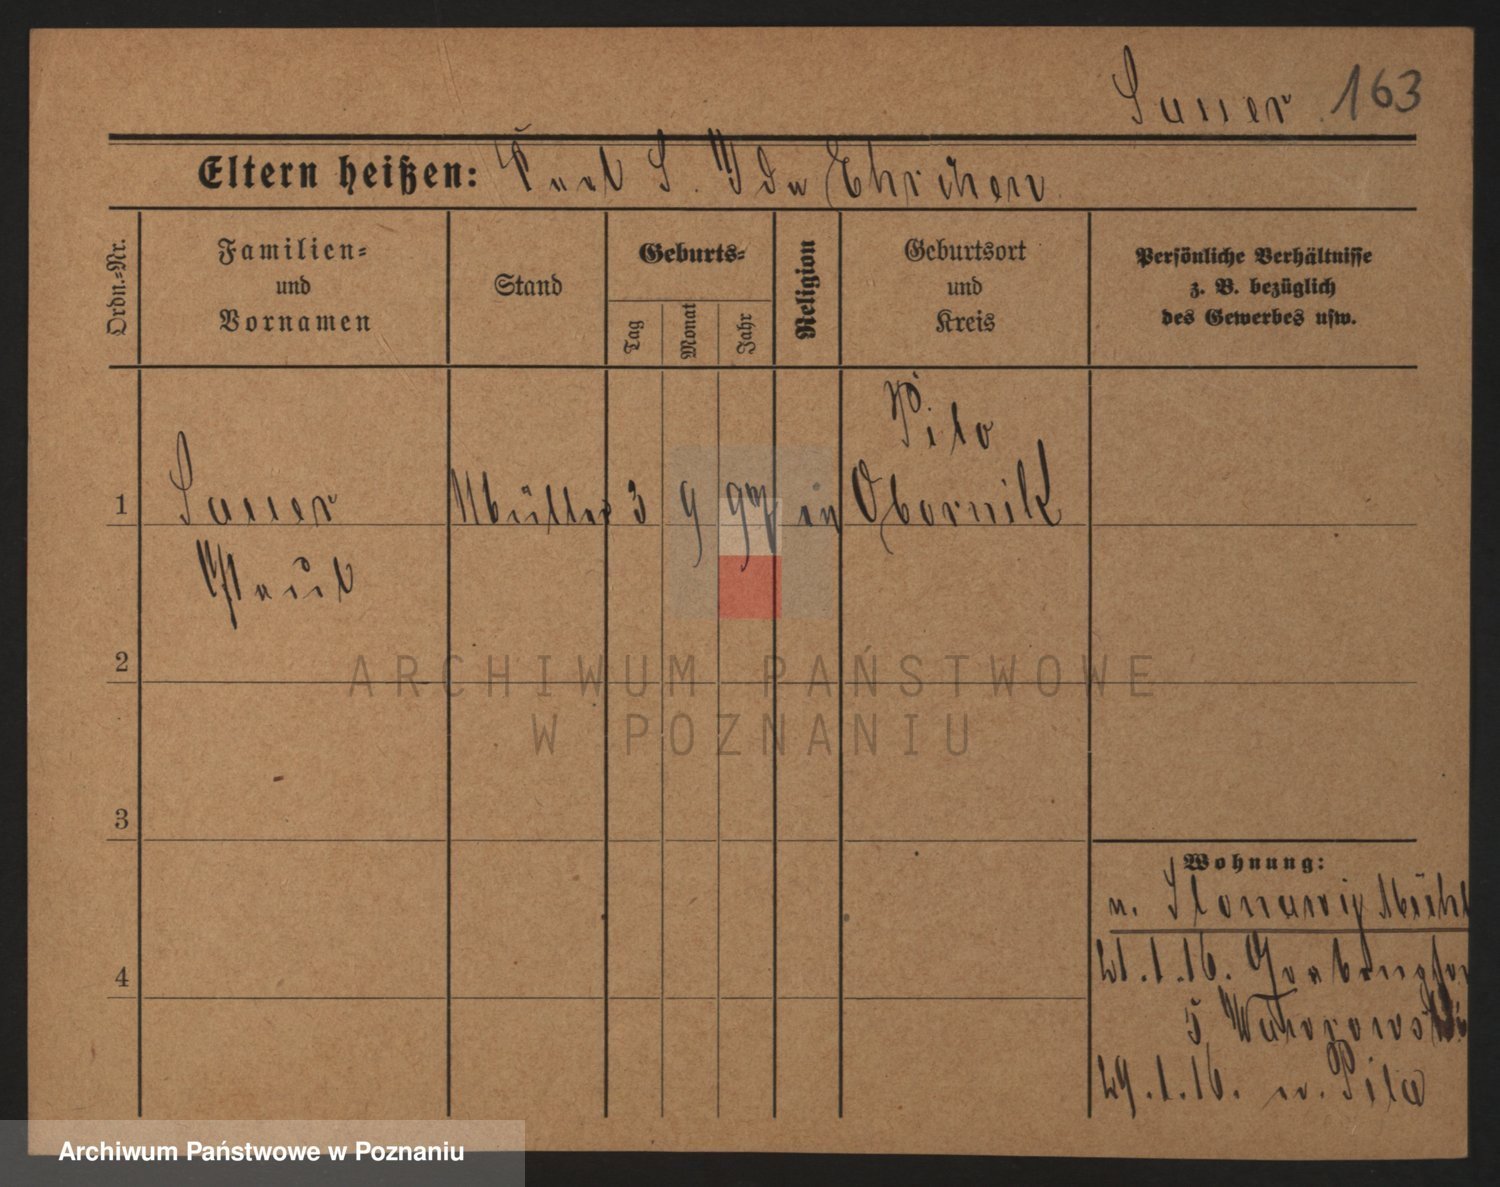 Sauer 163
Eltern heißen: Karl S. Ida Ehrichen
Ordn.-Nr.
Familien-
und
Vornamen
Stand
Geburts-
Tag
Monat
Jahr
Religion
Geburtsort
und
Kreis
Persönliche Verhältnisse
z. B. bezüglich
des Gewerbes usw.
Pila
1 Sauer Müller 3 9 97 Obornik
Paul
2
ARCHIWUM PAŃSTWOWE
W POZNANIU
3
Wohnung:
n. Slonawy Mühl
21.1.16.
5
29.1.16. n. Pila
4
Archiwum Państwowe w Poznaniu